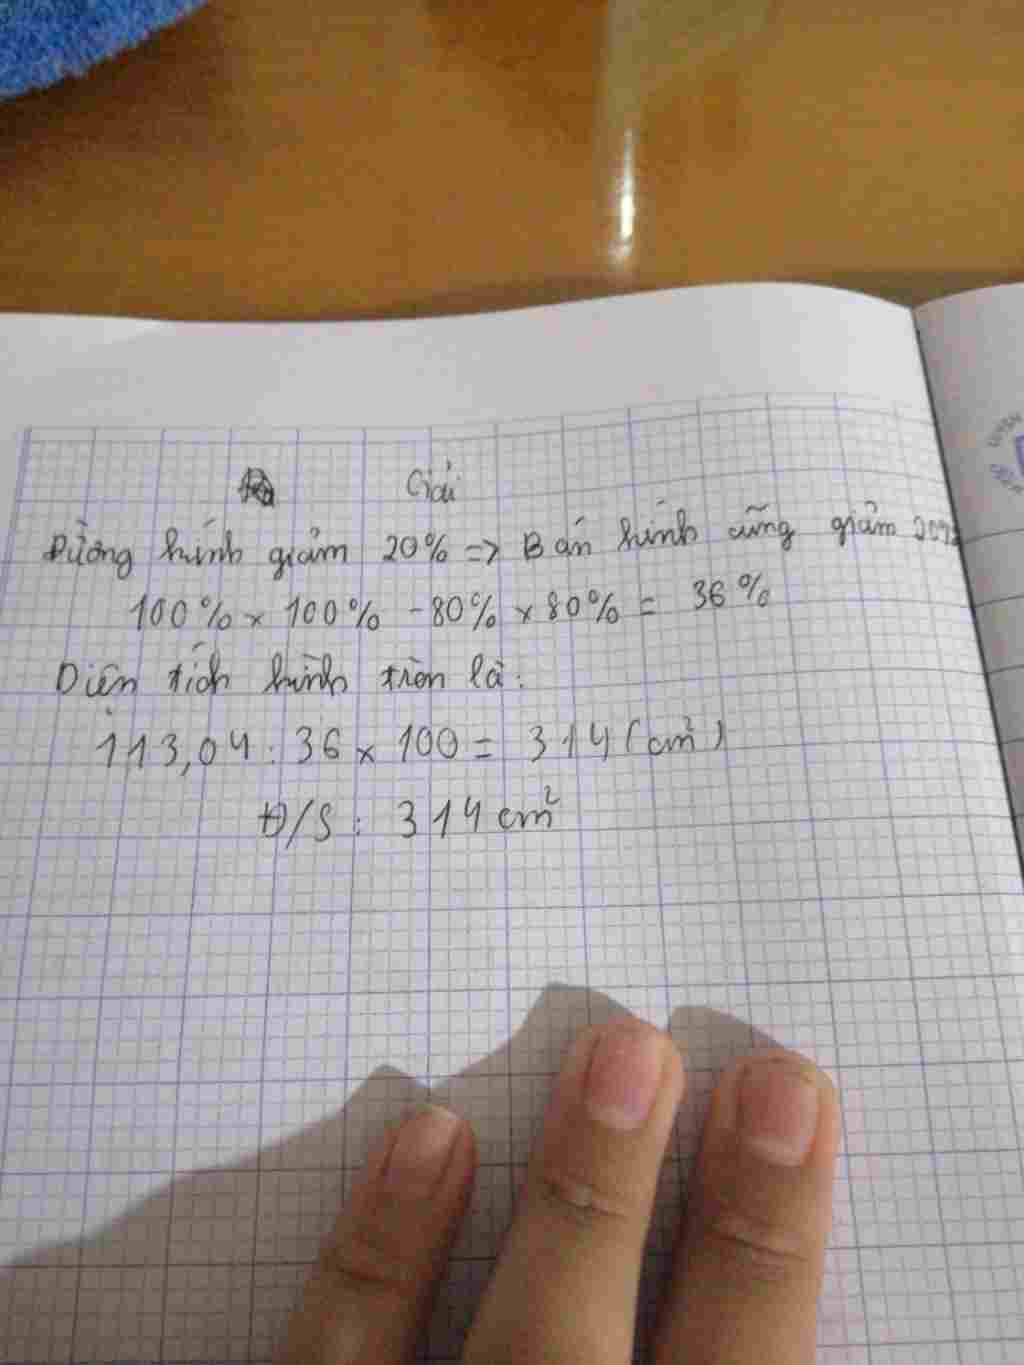 Giải
Đường kính giảm 20% => Bán kính cũng giảm 20%
100% x 100% - 80% x 80% = 36%
Diện tích hình tròn là:
113,04 : 36 x 100 = 314 (cm²)
Đ/S : 314 cm²